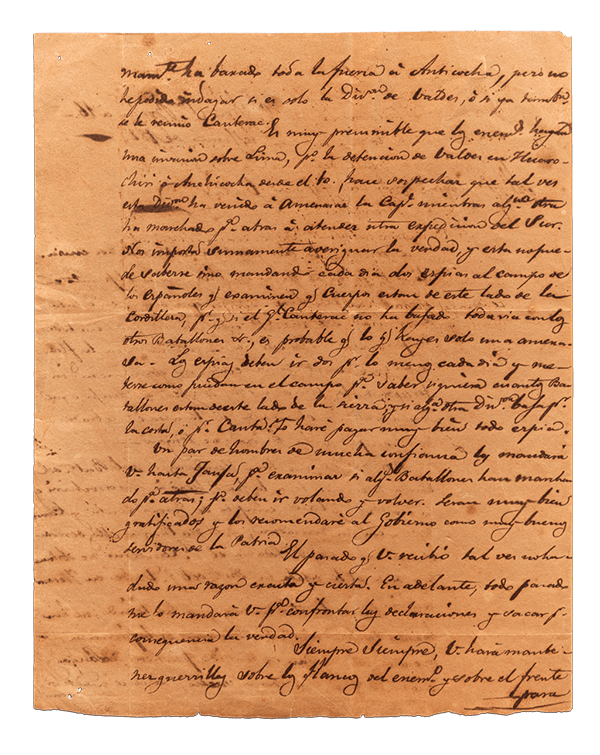 mam.te ha baxado toda la fuerza á Anticocha, pero no
he podido indagar si es solo la Div.on de Valdes, ó si ya tambn.
se le reunió Canterac.
Es muy presumible que los enem.s hagan
una invasion sobre Lima, p.r la detencion de Valdes en Huaro-
chiri ó Anchicocha desde el 10, hace sospechar que tal ves
esta Divon ha venido á Amenazar la Cap.l mientras alg.na otra
ha marchado p.a atras á atender otra expedicion del Sur.
Nos importa sumamente averiguar la verdad, y esta no pue-
de saberse sino mandando cada dia dos espias al campo de
los españoles q.e examinen q.e Cuerpos estan de este lado de la
Cordillera, p.r q.e si el G.l Canterac no ha bajado todavia con los
otros Batallones &., es probable q.e lo q.e hagan es solo una amena-
sa. Los espias deben ir dos p.r lo menos cada dia y me-
terse como puedan en el campo p.a saber siquiera cuantos Ba-
tallones estan de este lado de la sierra, y si alg.a otra Div.on baja p.r
la costa, ó p.r Canta. Yo haré pagar muy bien todo espia.
Un par de hombres de mucha confianza los mandará
V. hasta Jauja, p.a examinar si alg.s Batallones han marcha-
do p.a atras; p.s deben ir volando y volver. Seran muy bien
gratificados y los recomendaré al Gobierno como muy buenos
servidores de la Patria.
El pasado q.e V. recibió tal ves no ha
dado una razon exacta y cierta. En adelante, todo pasado
me lo mandará V. p.a confrontar las declaraciones y sacar p.r
consequencia la verdad.
Siempre siempre, V. hará mante-
ner guerrillas sobre los flancos del enem.o y sobre el frente
para